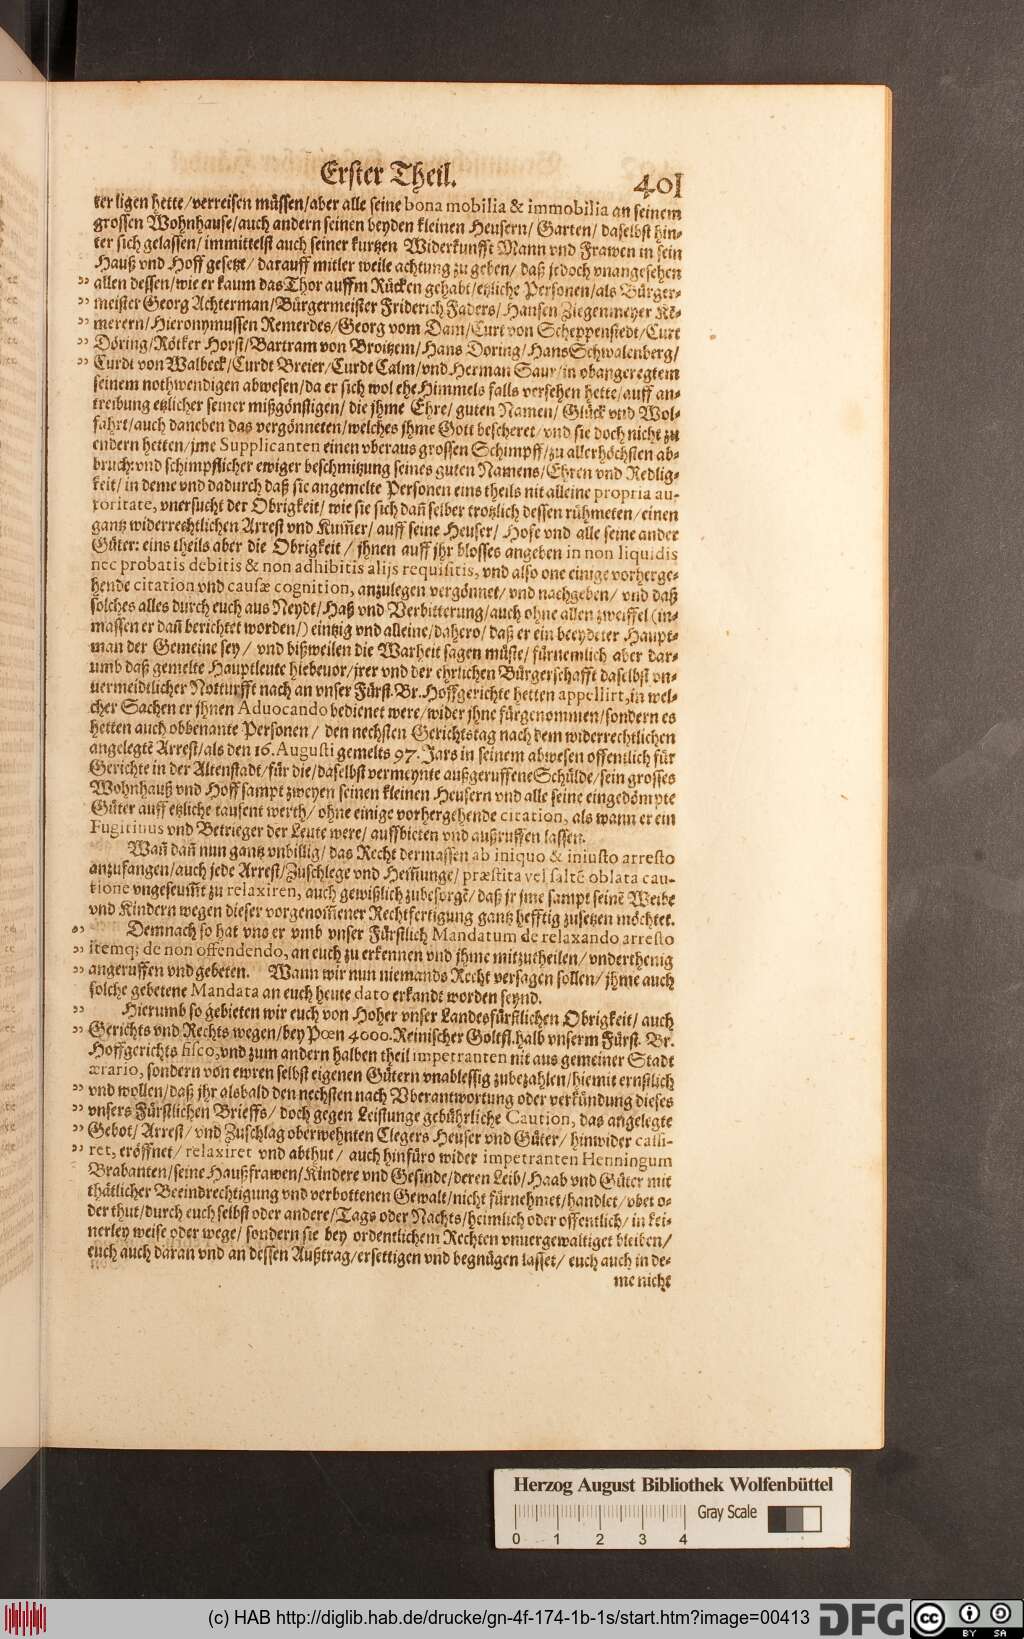 Erster Theil. 401
ter ligen hette/verreisen müssen/aber alle seine bona mobilia & immobilia an seinem
grossen Wohnhause/auch andern seinen beyden kleinen Heusern/ Garten/ daselbst hin-
ter sich gelassen/ immittelst auch seiner kurtzen Widerkunfft Mann vnd Frawen in sein
Hauß vnd Hoff gesetzt/ darauff mitler weile achtung zu geben/ daß jedoch vnangesehen
allen dessen/wie er kaum das Thor auffm Rücken gehabt/etzliche Personen/als Bürger-
meister Georg Achterman/Bürgermeister Friderich Faders/Hansen Ziegenmeyer Ke-
merern/Hieronymussen Remerdes/Georg vom Dam/Curt von Scheppenstedt/Curt
Döring/Rötker Horst/Bartram von Broitzem/Hans Doring/Hans Schwalenberg/
Curdt von Walbeck/Curdt Breier/Curdt Calm/vnd Herman Saur/in obangeregtem
seinem nothwendigen abwesen/da er sich wol ehe Himmels falls versehen hette/auff an-
treibung etzlicher seiner mißgönstigen/ die jhme Ehre/ guten Namen/ Glück vnd Wol-
fahrt/auch daneben das vergönneten/welches jhme Gott bescheret/vnd sie doch nicht zu
endern hetten/jme Supplicanten einen vberaus grossen Schimpff/zu allerhöchsten ab-
bruch vnd schimpflicher ewiger beschmitzung seines guten Namens/Ehren vnd Redlig-
keit/ in deme vnd dadurch daß sie angemelte Personen eins theils nit alleine propria au-
toritate, vnersucht der Obrigkeit/ wie sie sich dañ selber trotzlich dessen rühmeten/einen
gantz widerrechtlichen Arrest vnd Kum̃er/ auff seine Heuser/ Hofe vnd alle seine ander
Güter: eins theils aber die Obrigkeit / jhnen auff jhr blosses angeben in non liquidis
nec probatis debitis & non adhibitis alijs requisitis, vnd also one einige vorherge-
hende citation vnd causæ cognition, anzulegen vergönnet/ vnd nachgeben/ vnd daß
solches alles durch euch aus Neydt/Haß vnd Verbitterung/auch ohne allen zweiffel (in-
massen er dañ berichtet worden/) eintzig vnd alleine/dahero/ daß er ein beeydeter Haupt-
man der Gemeine sey/ vnd bißweilen die Warheit sagen müste/ fürnemlich aber dar-
umb daß gemelte Hauptleute hiebeuor/jrer vnd der ehrlichen Bürgerschafft daselbst vn-
uermeidtlicher Notturfft nach an vnser Fürst. Br. Hoffgerichte hetten appellirt, in wel-
cher Sachen er jhnen Aduocando bedienet were/wider jhne fürgenommen/sondern es
hetten auch obbenante Personen / den nechsten Gerichtstag nach dem widerrechtlichen
angelegtẽ Arrest/als den 16. Augusti gemelts 97. Jars in seinem abwesen offentlich für
Gerichte in der Altenstadt/für die/daselbst vermeynte außgeruffene Schülde/sein grosses
Wohnhauß vnd Hoff sampt zweyen seinen kleinen Heusern vnd alle seine eingedömpte
Güter auff etzliche tausent werth/ ohne einige vorhergehende citation, als wann er ein
Fugitiuus vnd Betrieger der Leute were/ auffbieten vnd außruffen lassen.
Wañ dañ nun gantz vnbillig/ das Recht dermassen ab iniquo & iniusto arresto
anzufangen/auch jede Arrest/Zuschlege vnd Hem̃unge/ præstita vel saltẽ oblata cau-
tione vngeseum̃t zu relaxiren, auch gewißlich zubesorgẽ/ daß jr jme sampt seinẽ Weibe
vnd Kindern wegen dieser vorgenom̃ener Rechtfertigung gantz hefftig zusetzen möchtet.
Demnach so hat vns er vmb vnser Fürstlich Mandatum de relaxando arresto
itemq; de non offendendo, an euch zu erkennen vnd jhme mitzutheilen/ vnderthenig
angeruffen vnd gebeten. Wann wir nun niemands Recht versagen sollen/ jhme auch
solche gebetene Mandata an euch heute dato erkandt worden seynd.
Hierumb so gebieten wir euch von Hoher vnser Landesfürstlichen Obrigkeit/ auch
Gerichts vnd Rechts wegen/bey Pœn 4000. Reinischer Goltfl. halb vnserm Fürst. Br.
Hoffgerichts fisco, vnd zum andern halben theil impetranten nit aus gemeiner Stadt
ærario, sondern von ewren selbst eigenen Gütern vnablessig zubezahlen/hiemit ernstlich
vnd wollen/daß jhr alsbald den nechsten nach Vberantwortung oder verkündung dieses
vnsers Fürstlichen Brieffs/ doch gegen Leistunge gebührliche Caution, das angelegte
Gebot/ Arrest/ vnd Zuschlag oberwehnten Clegers Heuser vnd Güter/ hinwider cassi-
ret, eröffnet/ relaxiret vnd abthut/ auch hinfüro wider impetranten Henningum
Brabanten/seine Haußfrawen/Kindere vnd Gesinde/deren Leib/Haab vnd Güter mit
thätlicher Beeindrechtigung vnd verbottenen Gewalt/nicht fürnehmet/handlet/vbet o-
der thut/durch euch selbst oder andere/Tags oder Nachts/heimlich oder offentlich/ in kei-
nerley weise oder wege/ sondern sie bey ordentlichem Rechten vnuergewaltiget bleiben/
euch auch daran vnd an dessen Außtrag/ersettigen vnd begnügen lasset/ euch auch in de-
me nicht
Herzog August Bibliothek Wolfenbüttel
Gray Scale
0 1 2 3 4
(c) HAB http://diglib.hab.de/drucke/gn-4f-174-1b-1s/start.htm?image=00413 DFG cc BY SA